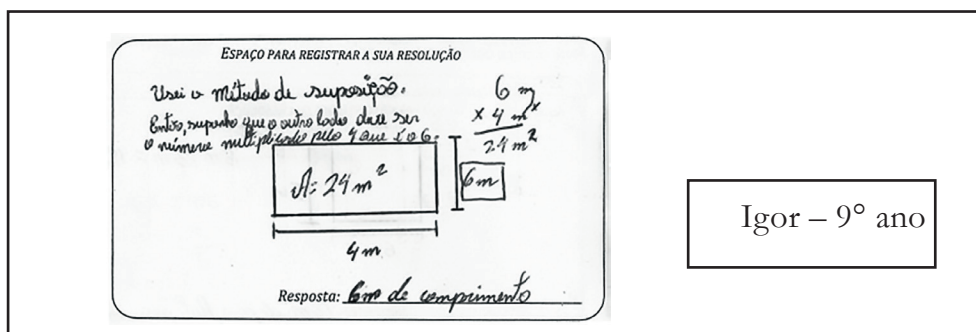 ESPAÇO PARA REGISTRAR A SUA RESOLUÇÃO
Usei o método de suposição.
Então, suponho que o outro lado deve ser
o número multiplicado pelo 4 que é o 6.
6 m
x 4 m
24 m²
A= 24 m²
6m
4 m
Resposta: 6m de comprimento
Igor – 9° ano